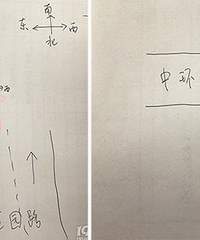 南
东 西
北
园路
中环